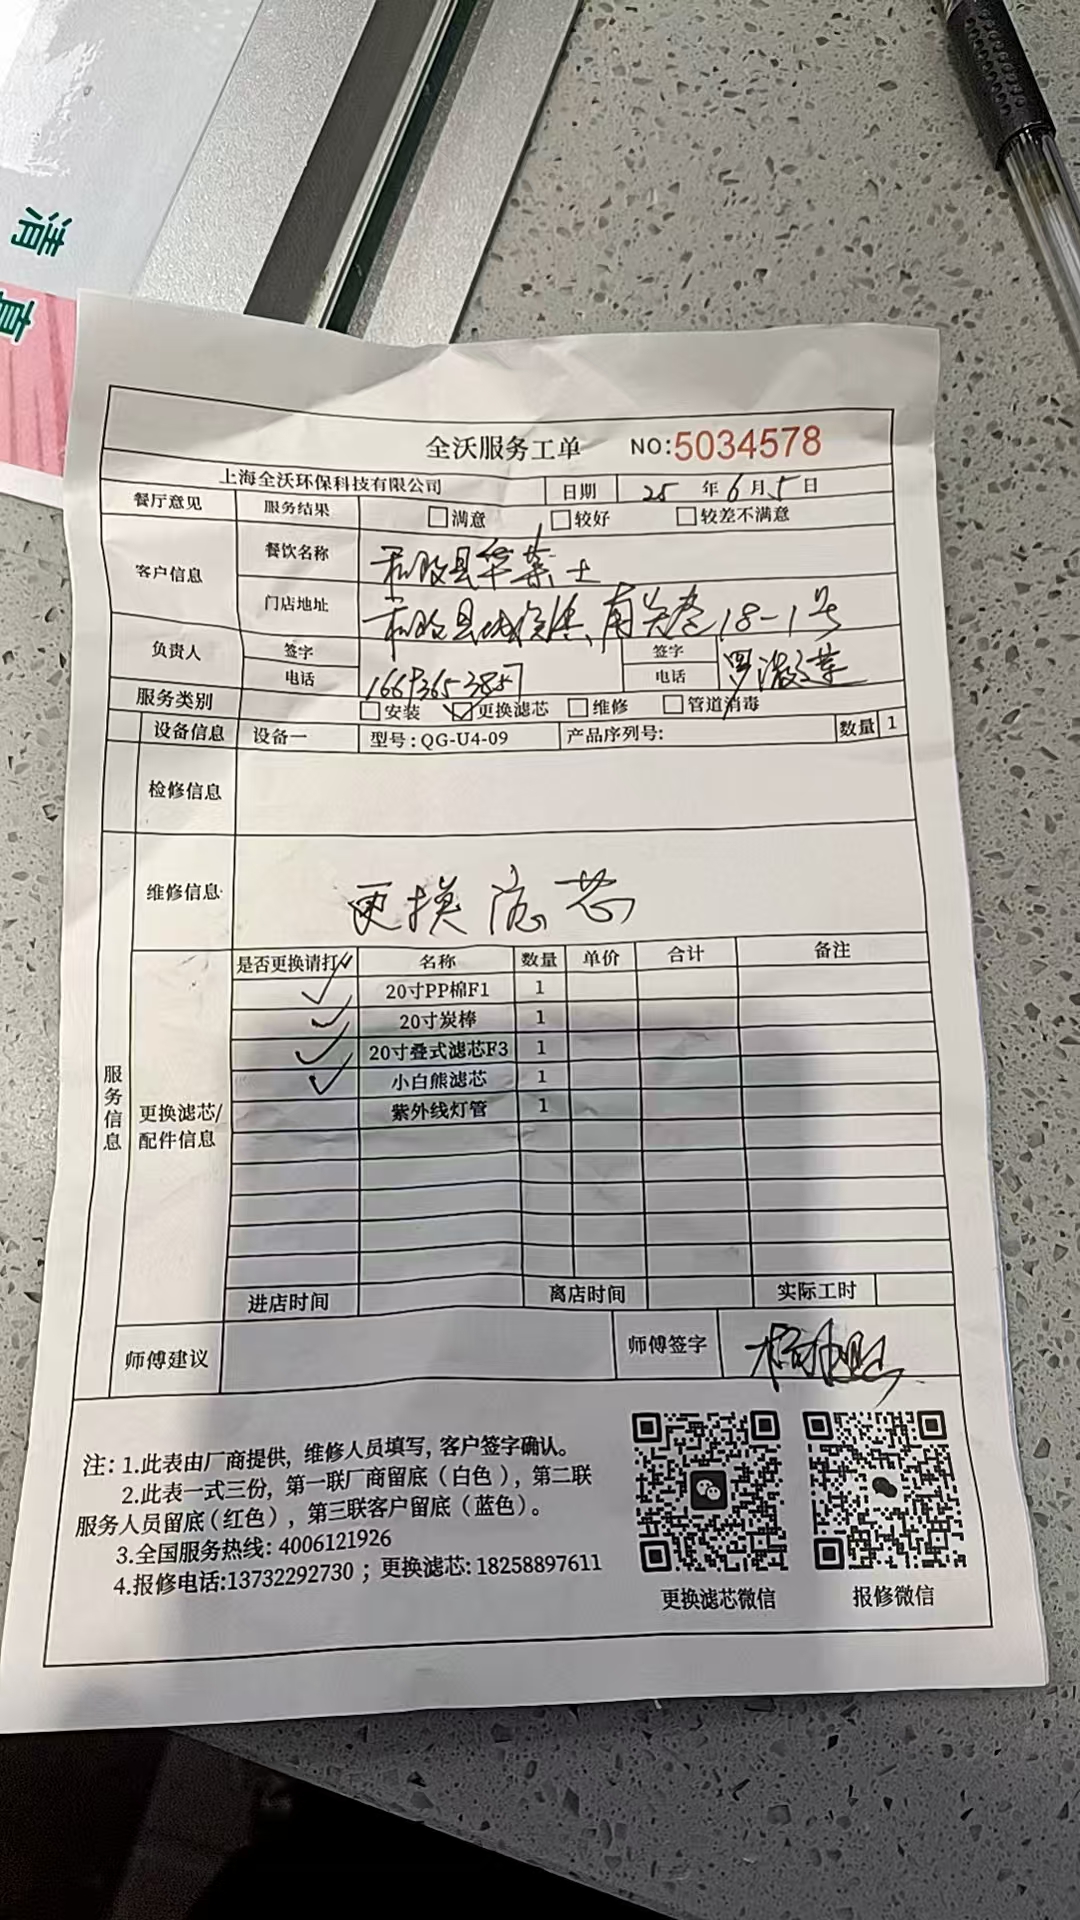 清真
全沃服务工单 NO:5034578
上海全沃环保科技有限公司 日期 25 年 6 月 5 日
餐厅意见 服务结果 □满意 □较好 □较差不满意
客户信息 餐饮名称 和政县华莱士
门店地址 和政县城关镇南关巷18-1号
负责人 签字 签字
电话 电话
服务类别 □安装 ☑更换滤芯 □维修 □管道消毒
设备信息 设备一 型号:QG-U4-09 产品序列号: 数量 1
检修信息
维修信息 更换滤芯
服务信息
更换滤芯/配件信息
是否更换请打√ 名称 数量 单价 合计 备注
✓ 20寸PP棉F1 1
✓ 20寸炭棒 1
✓ 20寸叠式滤芯F3 1
✓ 小白熊滤芯 1
紫外线灯管 1
进店时间 离店时间 实际工时
师傅建议 师傅签字
注: 1.此表由厂商提供, 维修人员填写, 客户签字确认。
2.此表一式三份, 第一联厂商留底(白色), 第二联
服务人员留底(红色), 第三联客户留底(蓝色)。
3.全国服务热线: 4006121926
4.报修电话:13732292730 ; 更换滤芯: 18258897611
更换滤芯微信 报修微信